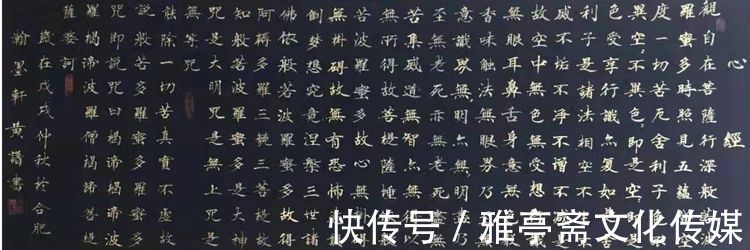 心經
觀自在菩薩行深般若
羅蜜多時照見五蘊
度一切苦厄舍利子
異空空不異色色即是空
色受想行識亦復如是
利子是諸法空相不
滅不垢不淨不增不
故空中無色無受想
無眼耳鼻舌身意無
香味觸法無眼界乃
意識界無無明亦無
至無老死亦無老死
苦集滅道無智亦無
無所得故菩提薩埵
若波羅蜜多故心無
無罣礙故無有恐怖
倒夢想究竟涅槃三世諸
佛依般若波羅蜜多故得
阿耨多羅三藐三菩提故
知般若波羅蜜多是大神
咒是大明咒是無上咒是
無等等咒
能除一切苦真實不虛故
說般若波羅蜜多
咒即說咒曰揭諦揭諦波
羅揭諦波羅僧揭諦菩提
薩婆訶
歲在戊戌仲秋於合肥
瀚墨軒黃譜書
快传号 / 雅亭斋文化传媒